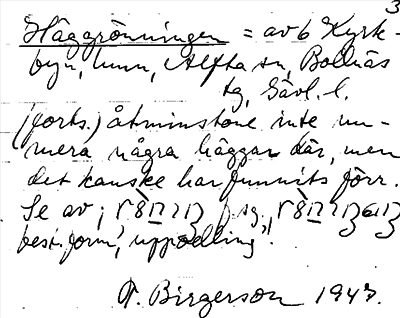 3
Häggrönningen = av b Kyrk-
byn, hmn, Alfta sn, Bollnäs
tg, Gävl. l.
(forts.) åtminstone inte nu-
mera några häggar där, men
det kanske har funnits förr.
Se av
best. form, uppodling".
Birgerson 1947.